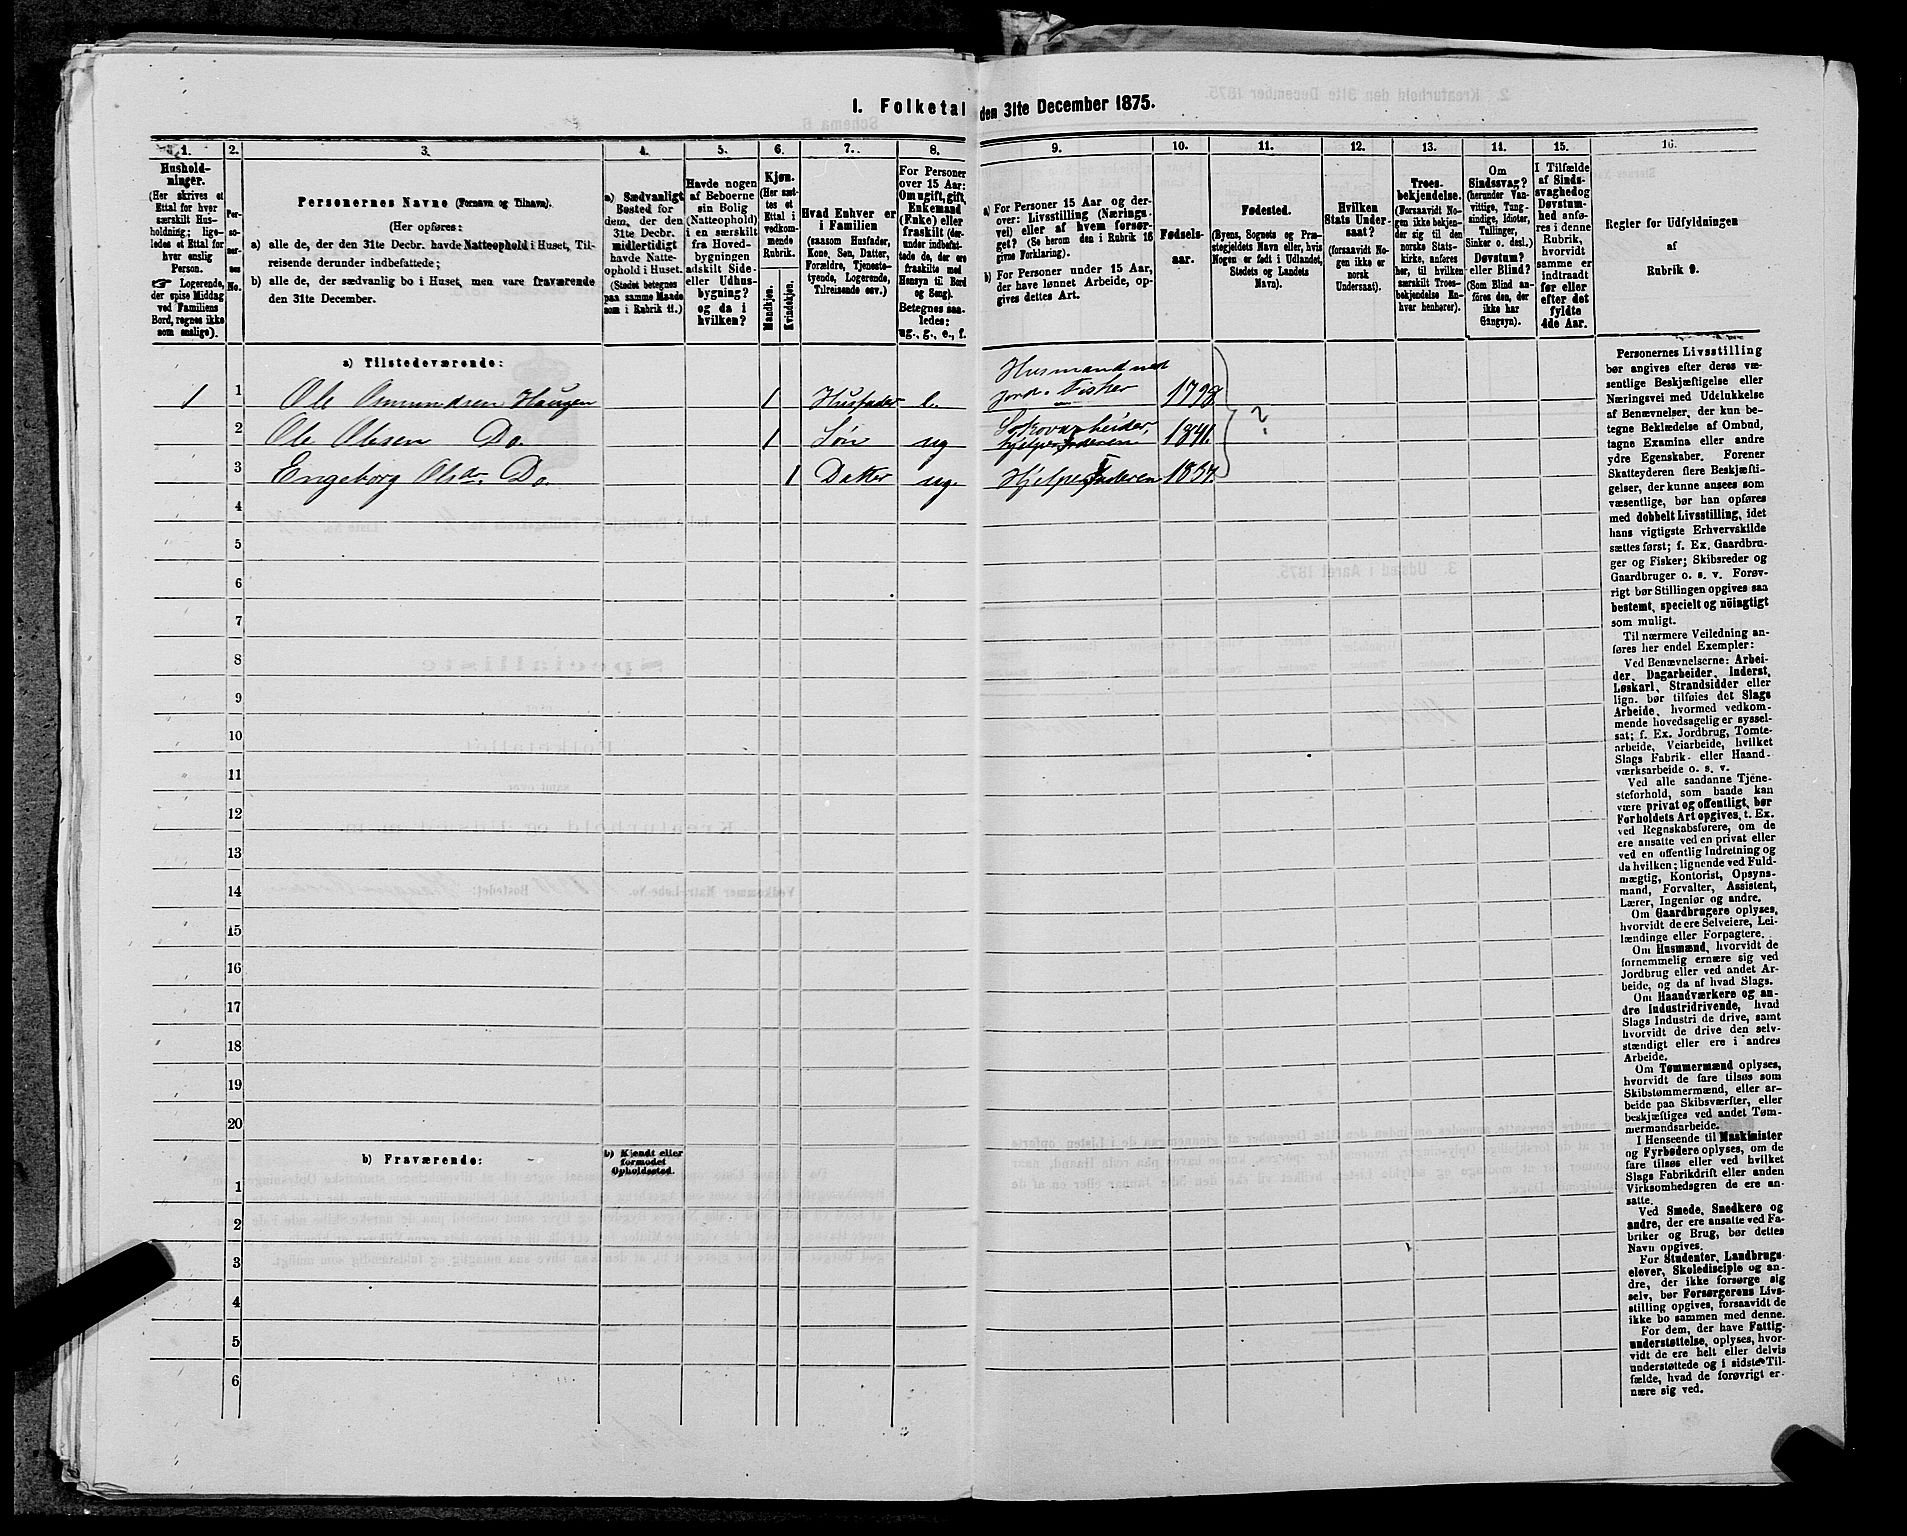 I. Folketal den 31te December 1875.
1. 2. 3. 4. 5. 6. 7. 8. 9. 10. 11. 12. 13. 14. 15. 16.
Hushold-
ninger.
(Her skrives et
Ettal for hver
særskilt Hus-
holdning; lige-
ledes et Ettal for
hver enslig
Person.
☞ Logerende,
der spise Middag
ved Familiens
Bord, regnes ikke
som enslige).
Per-
so-
ner-
nes
No.
Personernes Navne (Fornavn og Tilnavn).
(Her opføres:
a) alle de, der den 31te Decbr. havde Natteophold i Huset, Til-
reisende derunder indbefattede;
b) alle de, der sædvanlig bo i Huset, men vare fraværende
den 31te December.
a) Sædvanligt
Bosted for
dem, der den
31te Decbr.
midlertidigt
havde Natte-
ophold i Huset.
(Stedet betegnes
paa samme Maade
som i Rubrik 11.)
Havde nogen
af Beboerne
sin Bolig
(Natteophold)
i en særskilt
fra Hoved-
bygningen
adskilt Side-
eller Udhus-
bygning?
og da i
hvilken?
Kjøn.
(Her sæt-
tes et
Ettal i
vedkom-
mende
Rubrik.
Mandkjøn.
Kvindekjøn.
Hvad Enhver er
i Familien
(saasom Husfader,
Kone, Søn, Datter,
Forældre, Tjeneste-
tyende, Logerende,
Tilreisende osv.)
For Personer
over 15 Aar:
Om ugift, gift,
Enkemand
(Enke) eller
fraskilt (der-
under indbefat-
tede de, der ere
fraskilte med
Hensyn til Bord
og Seng).
Betegnes saa-
ledes:
ug., g., e., f.
a) For Personer over 15 Aar og der-
over: Livsstilling (Nærings-
vei) eller af hvem forsør-
get? (Se herom den i Rubrik 16
givne Forklaring).
b) For Personer under 15 Aar,
der have lønnet Arbeide, op-
gives dettes Art.
Fødsels-
aar.
Fødested.
(Byens, Sognets og Præ-
stegjeldets Navn eller, hvis
Nogen er født i Udlandet,
Stedets og Landets
Navn).
Hvilken
Stats Under-
saat?
(forsaavidt No-
gen ikke er
norsk
Undersaat).
Troes-
bekjendelse.
(Forsaavidt No-
gen ikke bekjen-
der sig til den
norske Stats-
kirke, anføres
her, til hvilken
særskilt Troes-
bekjendelse En-
hver henhører).
Om
Sindssvag?
(herunder Van-
vittige, Tung-
sindige, Idioter,
Tullinger,
Sinker o. desl.).
Døvstum?
eller Blind?
(Som Blind an-
føres den, der
ikke har
Gangsyn).
I Tilfælde
af Sinds-
svaghed og
Døvstum-
hed anfø-
res i denne
Rubrik,
hvorvidt
samme er
indtraadt
før eller
efter det
fyldte
4de Aar.
Regler for Udfyldningen
af
Rubrik 9.
a) Tilstedeværende:
1 1 Ole Omundsen Haugen 1 Husfader e. Husmand med Jord. Fisker 1798
2 Ole Olsen Do. 1 Søn ug Hjelper Faderen 1841.
3 Engeborg Olsdr. Do. 1 Datter ug. Hjelper Faderen 1837. ?
4
5
6
7
8
9
10
11
12
13
14
15
16
17
18
19
20
b) Fraværende:
b) Kjendt eller
formodet
Opholdssted.
1
2
3
4
5
6
Personernes Livsstilling
bør angives efter deres væ-
sentlige Beskjæftigelse eller
Næringsvei med Udelukkelse
af Benævnelser, der kun be-
tegne Beklædelse af Ombud,
tagne Examina eller andre
ydre Egenskaber. Forener
Skatteyderen flere Beskjæfti-
gelser, der kunne ansees som
væsentlige, bør han opføres
med dobbelt Livsstilling, idet
hans vigtigste Erhvervskilde
sættes først; f. Ex. Gaardbru-
ger og Fisker; Skibsreder og
Gaardbruger o. s. v. Forøv-
rigt bør Stillingen opgives saa
bestemt, specielt og nöiagtigt
som muligt.
Til nærmere Veiledning an-
føres her endel Exempler:
Ved Benævnelserne: Arbei-
der, Dagarbeider, Inderst,
Løskarl, Strandsidder eller
lign. bør tilføies det Slags
Arbeide, hvormed vedkom-
mende hovedsagelig er syssel-
sat; f. Ex. Jordbrug, Tomte-
arbeide, Veiarbeide, hvilket
Slags Fabrik- eller Haand-
værksarbeide o. s. v.
Ved alle saadanne Tjene-
steforhold, som baade kan
være privat og offentligt, bør
Forholdets Art opgives, t. Ex.
ved Regnskabsførere, om de
ere ansatte ved en privat eller
ved en offentlig Indretning og
da hvilken; lignende ved Fuld-
mægtig, Kontorist, Opsyns-
mand, Forvalter, Assistent,
Lærer, Ingeniør og andre.
Om Gaardbrugere oplyses,
hvorvidt de ere Selveiere, Lei-
lændinge eller Forpagtere.
Om Husmænd, hvorvidt de
fornemmelig ernære sig ved
Jordbrug eller ved andet Ar-
beide, og da af hvad Slags.
Om Haandværkere og an-
dre Industridrivende, hvad
Slags Industri de drive, samt
hvorvidt de drive den selv-
stændigt eller ere i andres
Arbeide.
Om Tømmermænd oplyses,
hvorvidt de fare tilsøs som
Skibstømmermænd, eller ar-
beide paa Skibsværfter, eller
beskjæftiges ved andet Tøm-
mermandsarbeide.
I Henseende til Maskinister
og Fyrbødere oplyses, om de
fare tilsøs eller ved hvilket
Slags Fabrikdrift eller anden
Virksomhedsgren de ere an-
satte.
Ved Smede, Snedkere og
andre, der ere ansatte ved Fa-
briker og Brug, bør dettes
Navn opgives.
For Studenter, Landbrugs-
elever, Skoledisciple og an-
dre, der ikke forsørge sig
selv, bør Forsørgerens Livs-
stilling opgives, forsaavidt de
ikke bo sammen med denne.
For dem, der have Fattig-
understøttelse, oplyses, hvor-
vidt de ere helt eller delvis
understøttede og i sidste Til-
fælde, hvad de forøvrigt er-
nære sig ved.